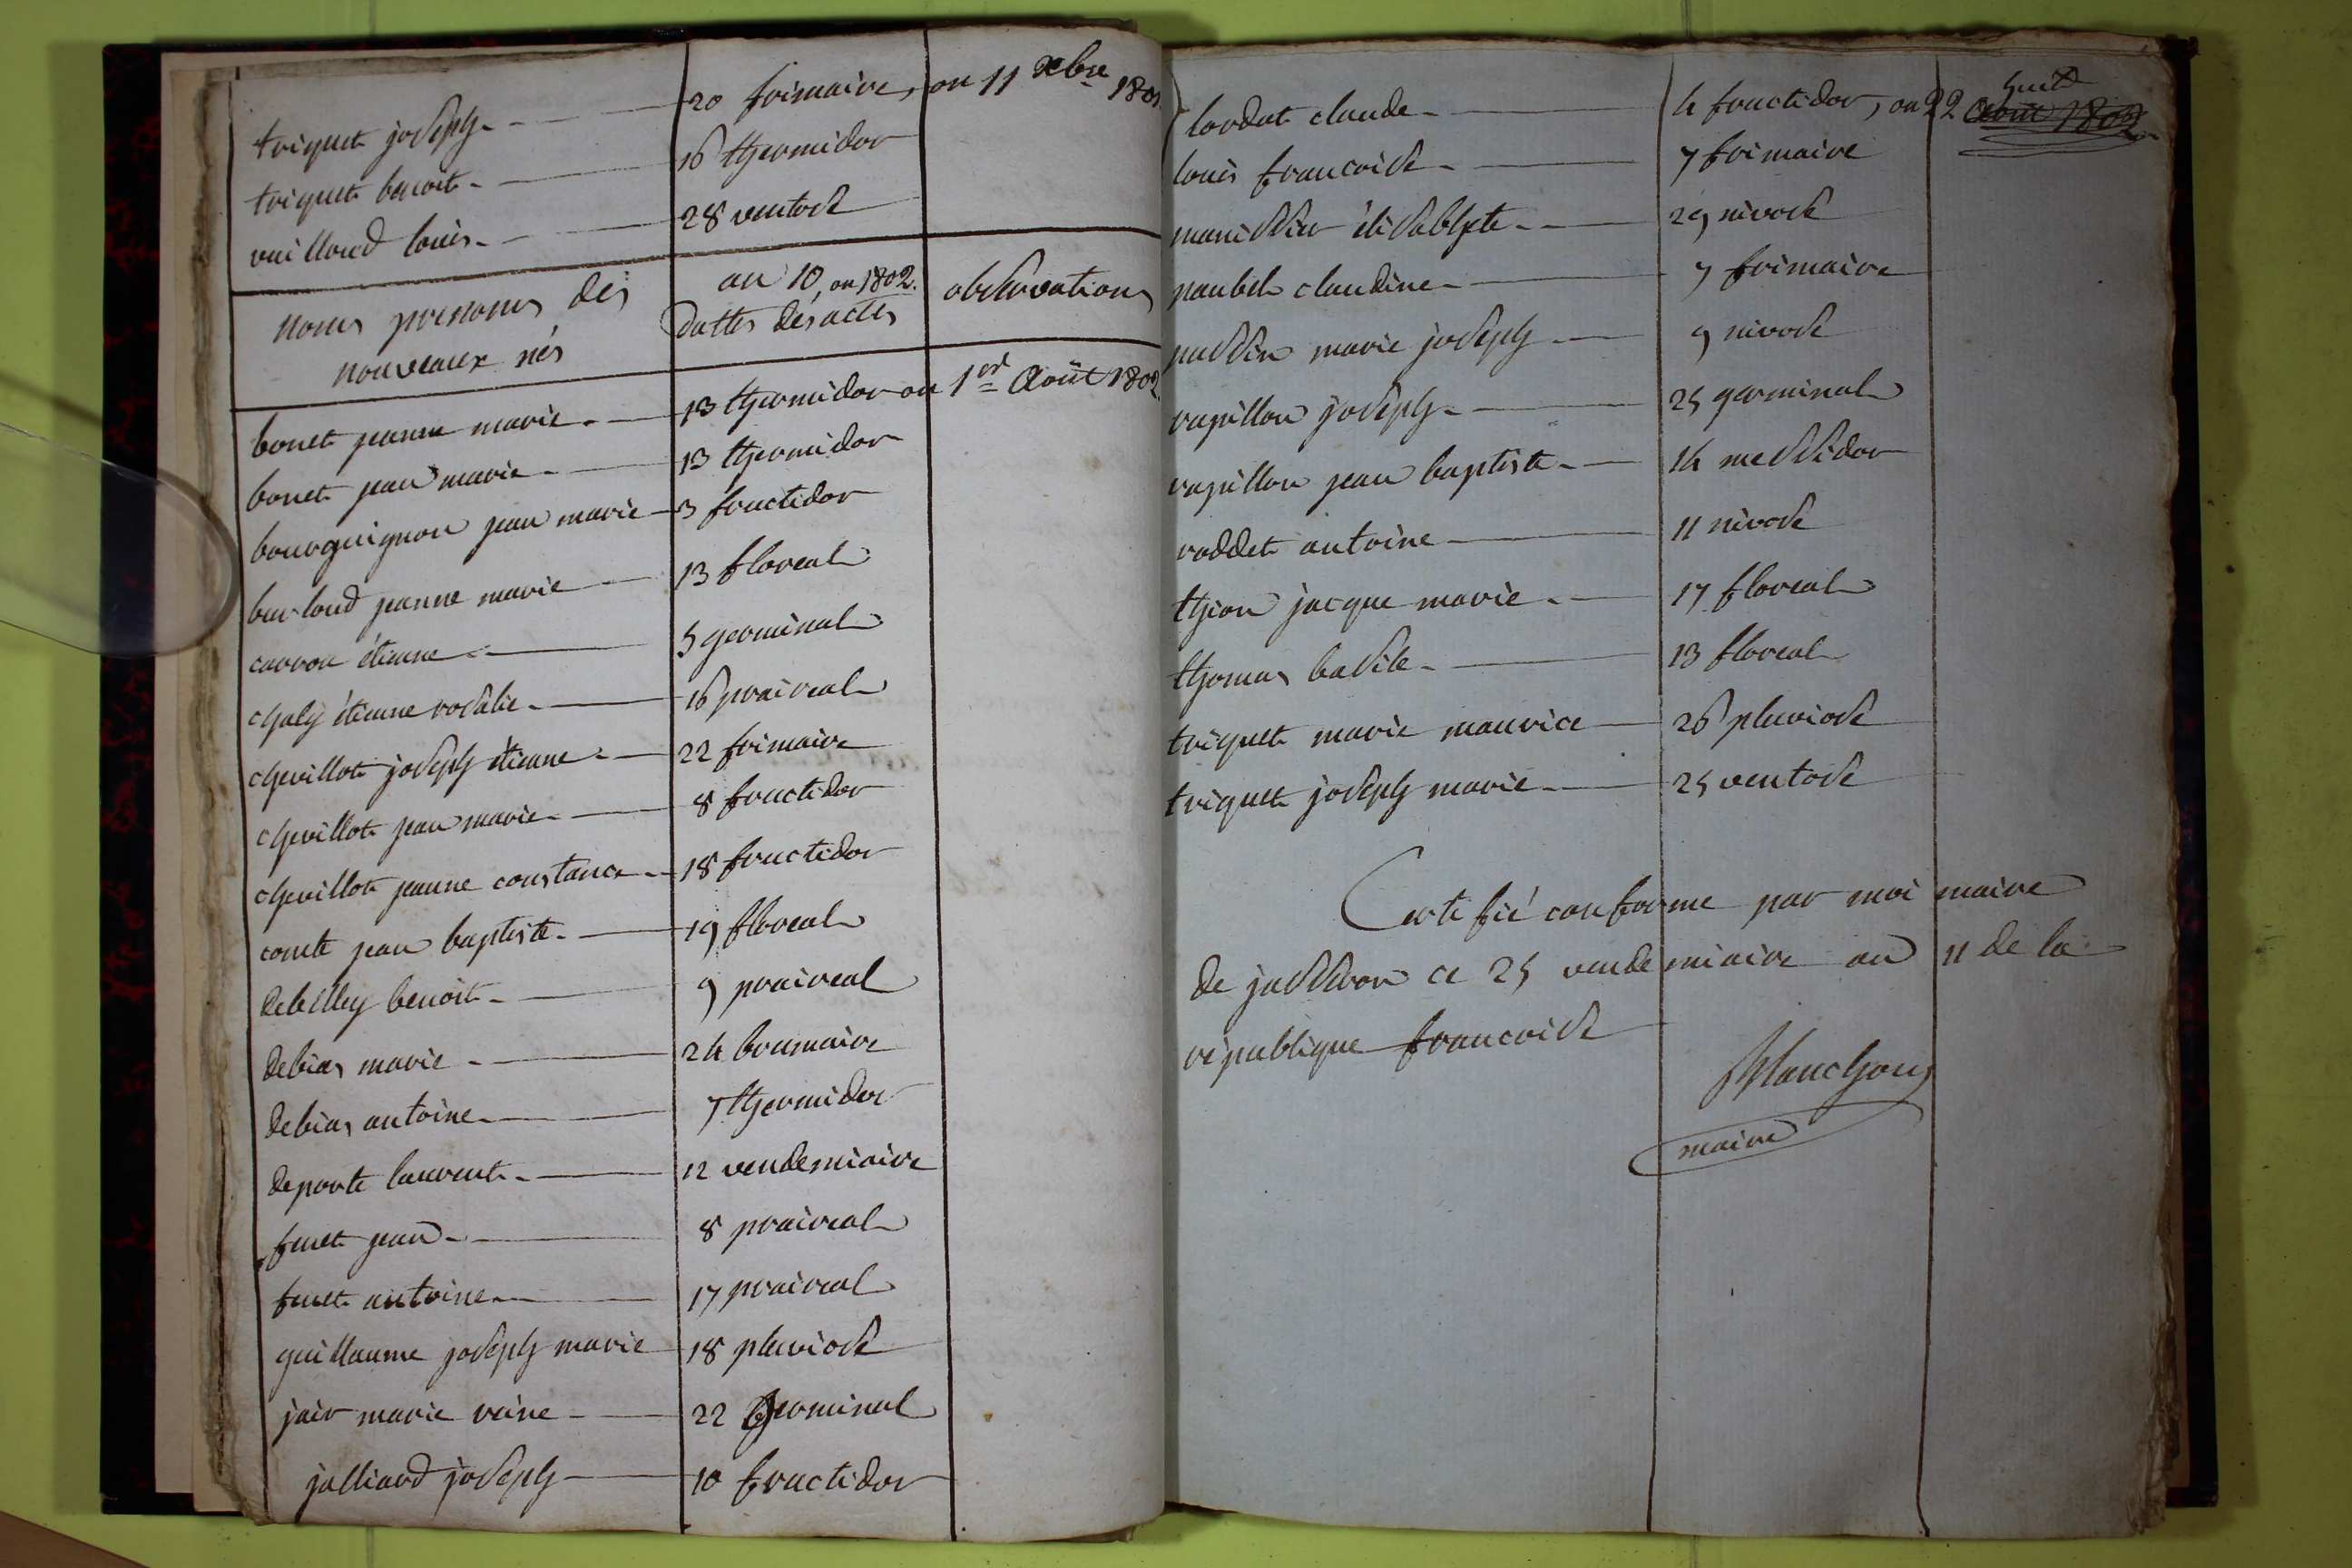 triquet joseph - 20 frimaire, ou 11 xbre 1801
triquet benoit - 16 thermidor
vuilloud louis - 28 ventose
noms prenoms des
nouveaux nés
an 10, ou 1802.
dattes des actes
observations
bonet jeanne marie - 13 thermidor ou 1er Août 1802
bonet jean marie - 13 thermidor
bourguignon jean marie - 3 fructidor
burloud jeanne marie - 13 floreal
carron étienne - 5 germinal
chaly étienne rosalie - 16 praireal
chevillot joseph étienne - 22 frimaire
chevillot jean marie - 8 fructidor
chevillot jeanne constance - 18 fructidor
comte jean baptiste - 19 floreal
debilley benoit - 9 praireal
debias marie - 24 brumaire
debias antoine - 7 thermidor
deporte laurent - 12 vendemiaire
feuet jean - 8 praireal
feuet antoine - 17 praireal
guillaume joseph marie 18 pluviose
jair marie reine - 22 Germinal
jolliard joseph - 10 fructidor
lordat claude - 4 fructidor, ou 22 août 1802
louis francoise - 7 frimaire
manissier élisabhte - 29 nivose
paubel claudine - 7 frimaire
passin marie joseph - 9 nivose
rapillon joseph - 25 germinal
rapillon jean baptiste - 14 messidor
roddet antoine - 11 nivose
thion jacque marie - 17 floreal
thomas basile - 13 floreal
triquet marie maurice - 26 pluviose
triquet joseph marie - 25 ventose
Certifié conforme par moi maire
de jasseron ce 25 vendemiaire an 11 de la
république francoise
Blanchon
maire